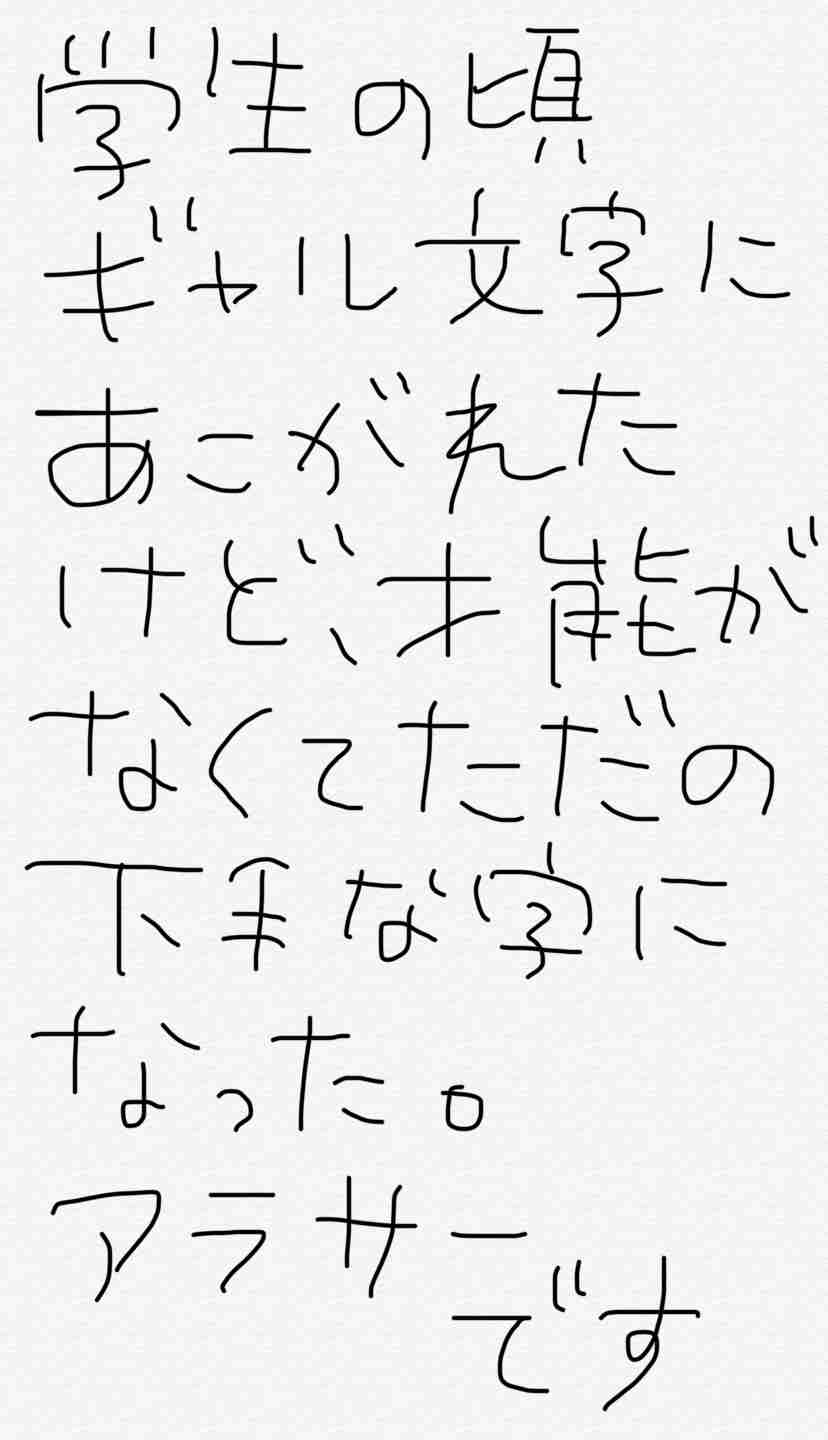 学生の頃
ギャル文字に
あこがれた
けど、才能が
なくてただの
下手な字に
なった。
アラサー
です